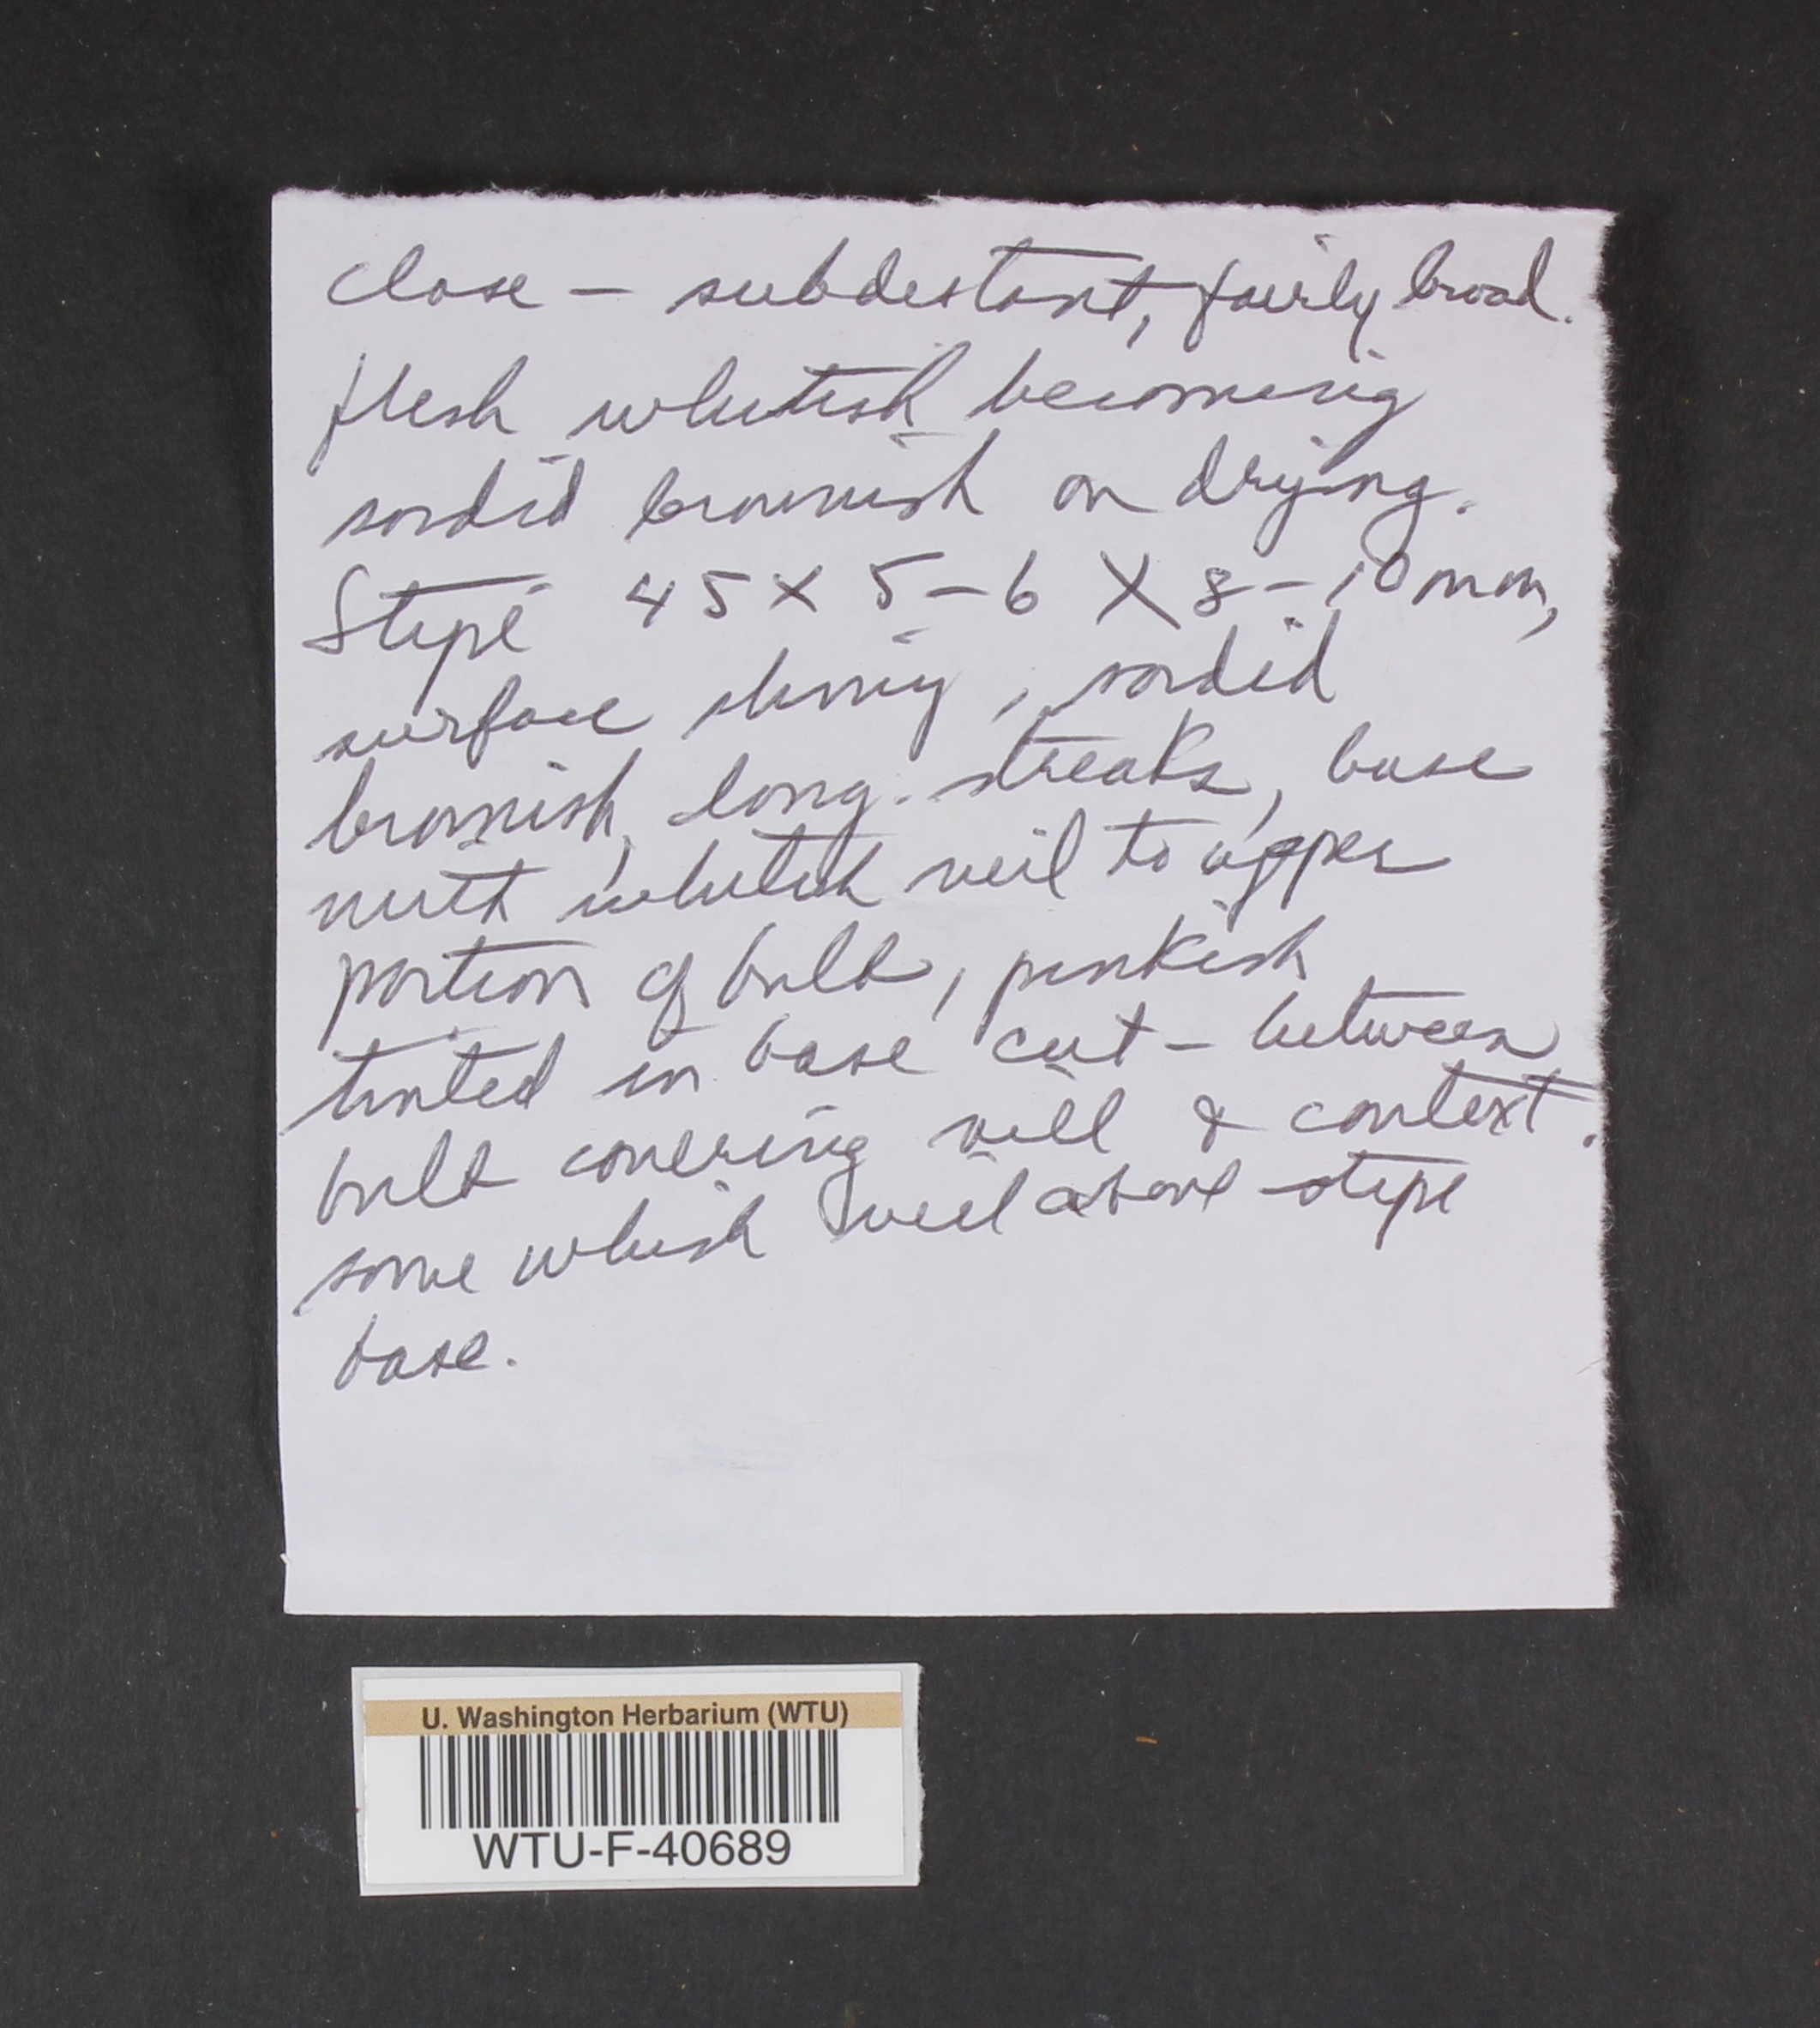 close – subdistant, fairly broad.
flesh whitish becoming
sordid brownish on drying.
Stipe 45 x 5–6 X 8–10 mm,
surface shiny, sordid
brownish, long. streaks, base
with whitish veil to upper
portion of bulb, pinkish
tinted in base cut – between
bulb covering veil & context.
some whish veil above stipe
base.
U. Washington Herbarium (WTU)
WTU-F-40689